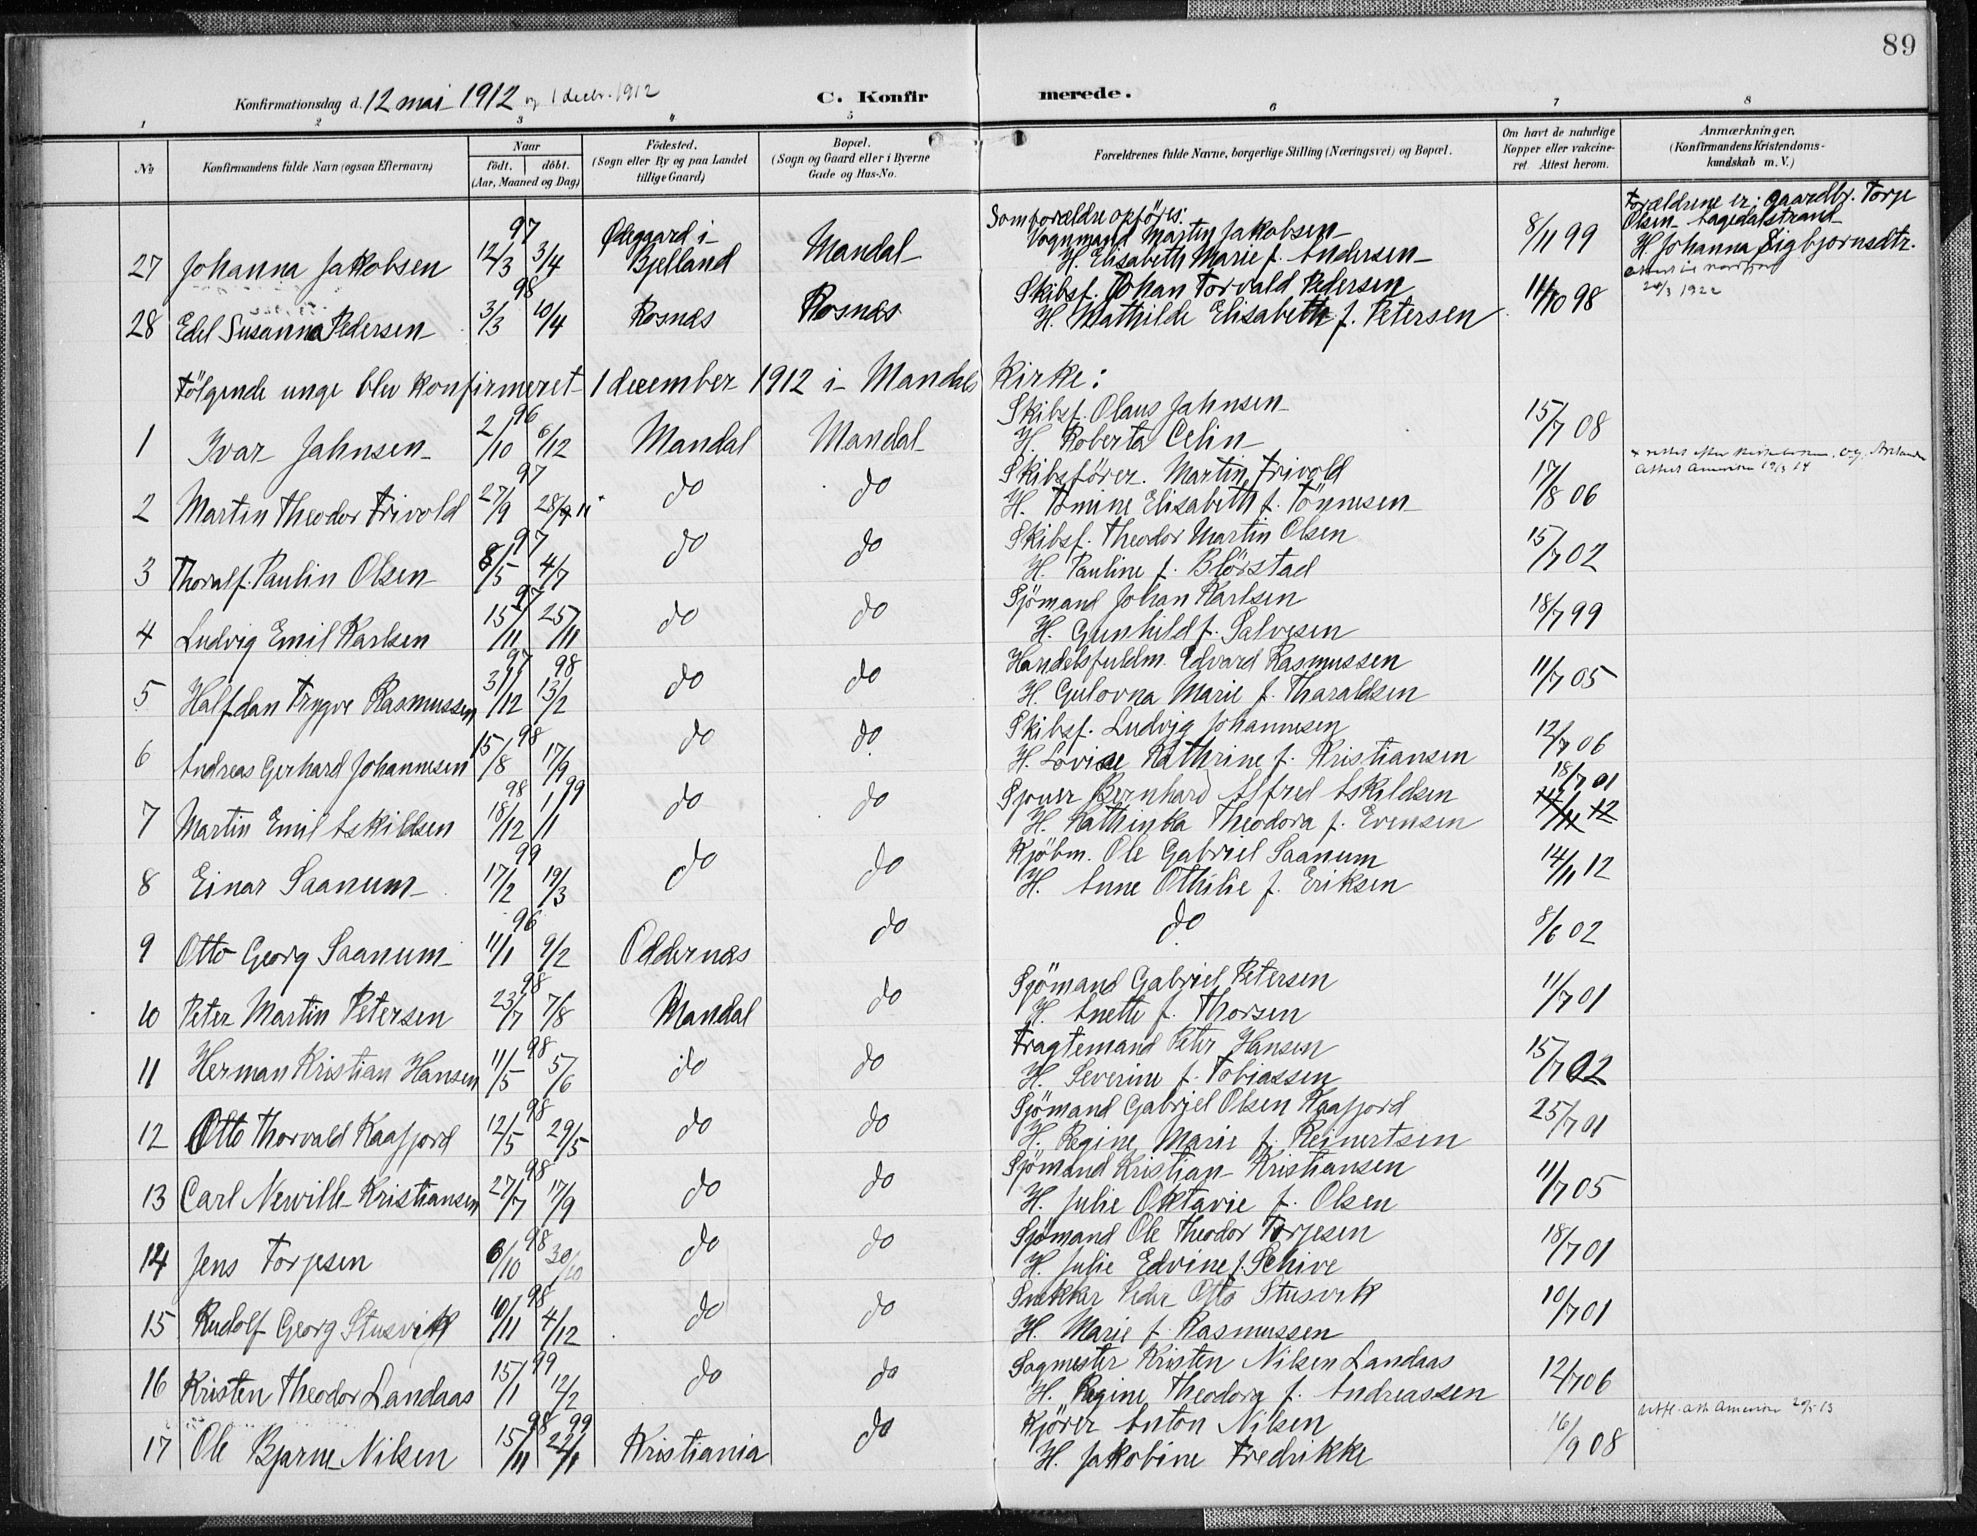 89
Konfirmationsdag d. 12 mai 1912 og 1 decbr. 1912 C. Konfirmerede.
1 2 3 4 5 6 7 8
No Konfirmandens fulde Navn (ogsaa Efternavn) Naar födt. döbt. (Aar, Maaned og Dag) Födested. (Sogn eller By og paa Landet tillige Gaard) Bopæl. (Sogn og Gaard eller i Byerne Gade og Hus-No. Forældrenes fulde Navne, borgerlige Stilling (Næringsvei) og Bopæl. Om havt de naturlige Kopper eller vakcineret. Attest herom. Anmærkninger. (Konfirmandens Kristendomskundskab m. V.)
27 Johanna Jakobsen 97 12/3 3/4 Ødegaard i Bjelland Mandal Som forældre opföres: Vognmand Martin Jakobsen H. Elisabeth Marie f. Andersen 8/11 99 Forældrene er: Gaardbr. Torje Olsen H. Johanna Sigbjornsdtr.
20/3 1922
28 Edel Susanna Pedersen 98 3/3 10/4 Rosnes Rosnes Skibsf. Johan Torvald Pedersen H. Mathilde Elisabeth f. Petersen 11/10 98
Fölgende unge blev konfirmeret 1 december 1912 i Mandals Kirke:
1 Ivar Jahnsen 96 2/10 6/12 Mandal Mandal Skibsf. Olaus Jahnsen H. Roberta Celin 15/7 08
2 Martin Theodor Trivold 97 27/9 28/11 do do Skibsförer. Martin Trivold H. Tomine Elisabeth f. Tönnesen 17/8 06 Attest Amerika 19/3 14
3 Thoralf Paulin Olsen 97 8/5 4/7 do do Skibsf. Theodor Martin Olsen H. Pauline f. Blörstad 15/7 02
4 Ludvig Emil Karlsen 97 15/11 25/11 do do Sjömand Johan Karlsen H. Gunhild f. Salvesen 18/7 99
5 Halfdan Trygve Rasmussen 97 31/12 98 13/2 do do Handelsfuldm. Edvard Rasmussen H. Gulovna Marie f. Tharaldsen 11/7 05
6 Andreas Gerhard Johannesen 98 15/8 17/9 do do Skibsf. Ludvig Johannesen H. Lovise Kathrine f. Kristiansen 12/7 06
7 Martin Emil Askildsen 98 18/12 99 1/1 do do Bernhard Alfred Askildsen H. Kathinka Theodora f. Evensen 18/7 01
8 Einar Saanum 99 17/2 19/3 do do Kjöbm. Ole Gabriel Saanum H. Anne Othilie f. Eriksen 14/11 12
9 Otto Georg Saanum 96 11/1 9/2 Oddernes do do 8/6 02
10 Peter Martin Petersen 98 23/7 7/8 Mandal do Sjömand Gabriel Petersen H. Anette f. Thorsen 11/7 01
11 Herman Kristian Hansen 98 11/5 5/6 do do Fragtemand Peter Hansen H. Severine f. Tobiassen 15/7 02
12 Otto Thorvald Kaafjord 98 12/5 29/5 do do Sjömand Gabriel Olsen Kaafjord H. Regine Marie f. Reinertsen 25/7 01
13 Carl Neville Kristiansen 98 27/7 17/9 do do Sjömand Kristian Kristiansen H. Julie Oktavie f. Olsen 11/7 05
14 Jens Torjesen 98 6/10 30/10 do do Sjömand Ole Theodor Torjesen H. Julie Edvine f. Schive 18/7 01
15 Rudolf Georg Stusvik 98 10/11 4/12 do do Snekker Peder Otto Stusvik H. Marie f. Rasmussen 10/7 01
16 Kristen Theodor Landaas 99 15/1 12/2 do do Sagmester Kristen Nilsen Landaas H. Regine Theodora f. Andreassen 12/7 06
17 Ole Bjarne Nilsen 98 15/11 99 22/1 Kristiania do Kjörer Anton Nilsen H. Jakobine Fredrikke 16/9 08 Utfl. att. Amerika 20/5 13